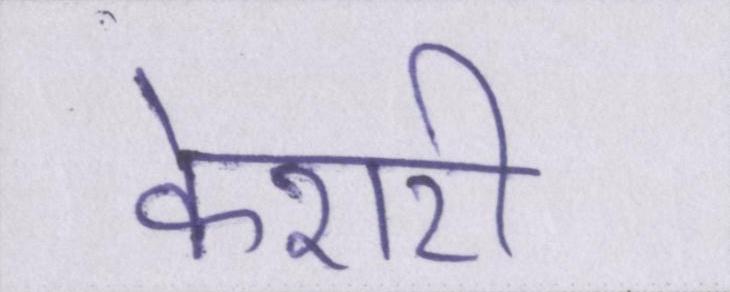 केशरी